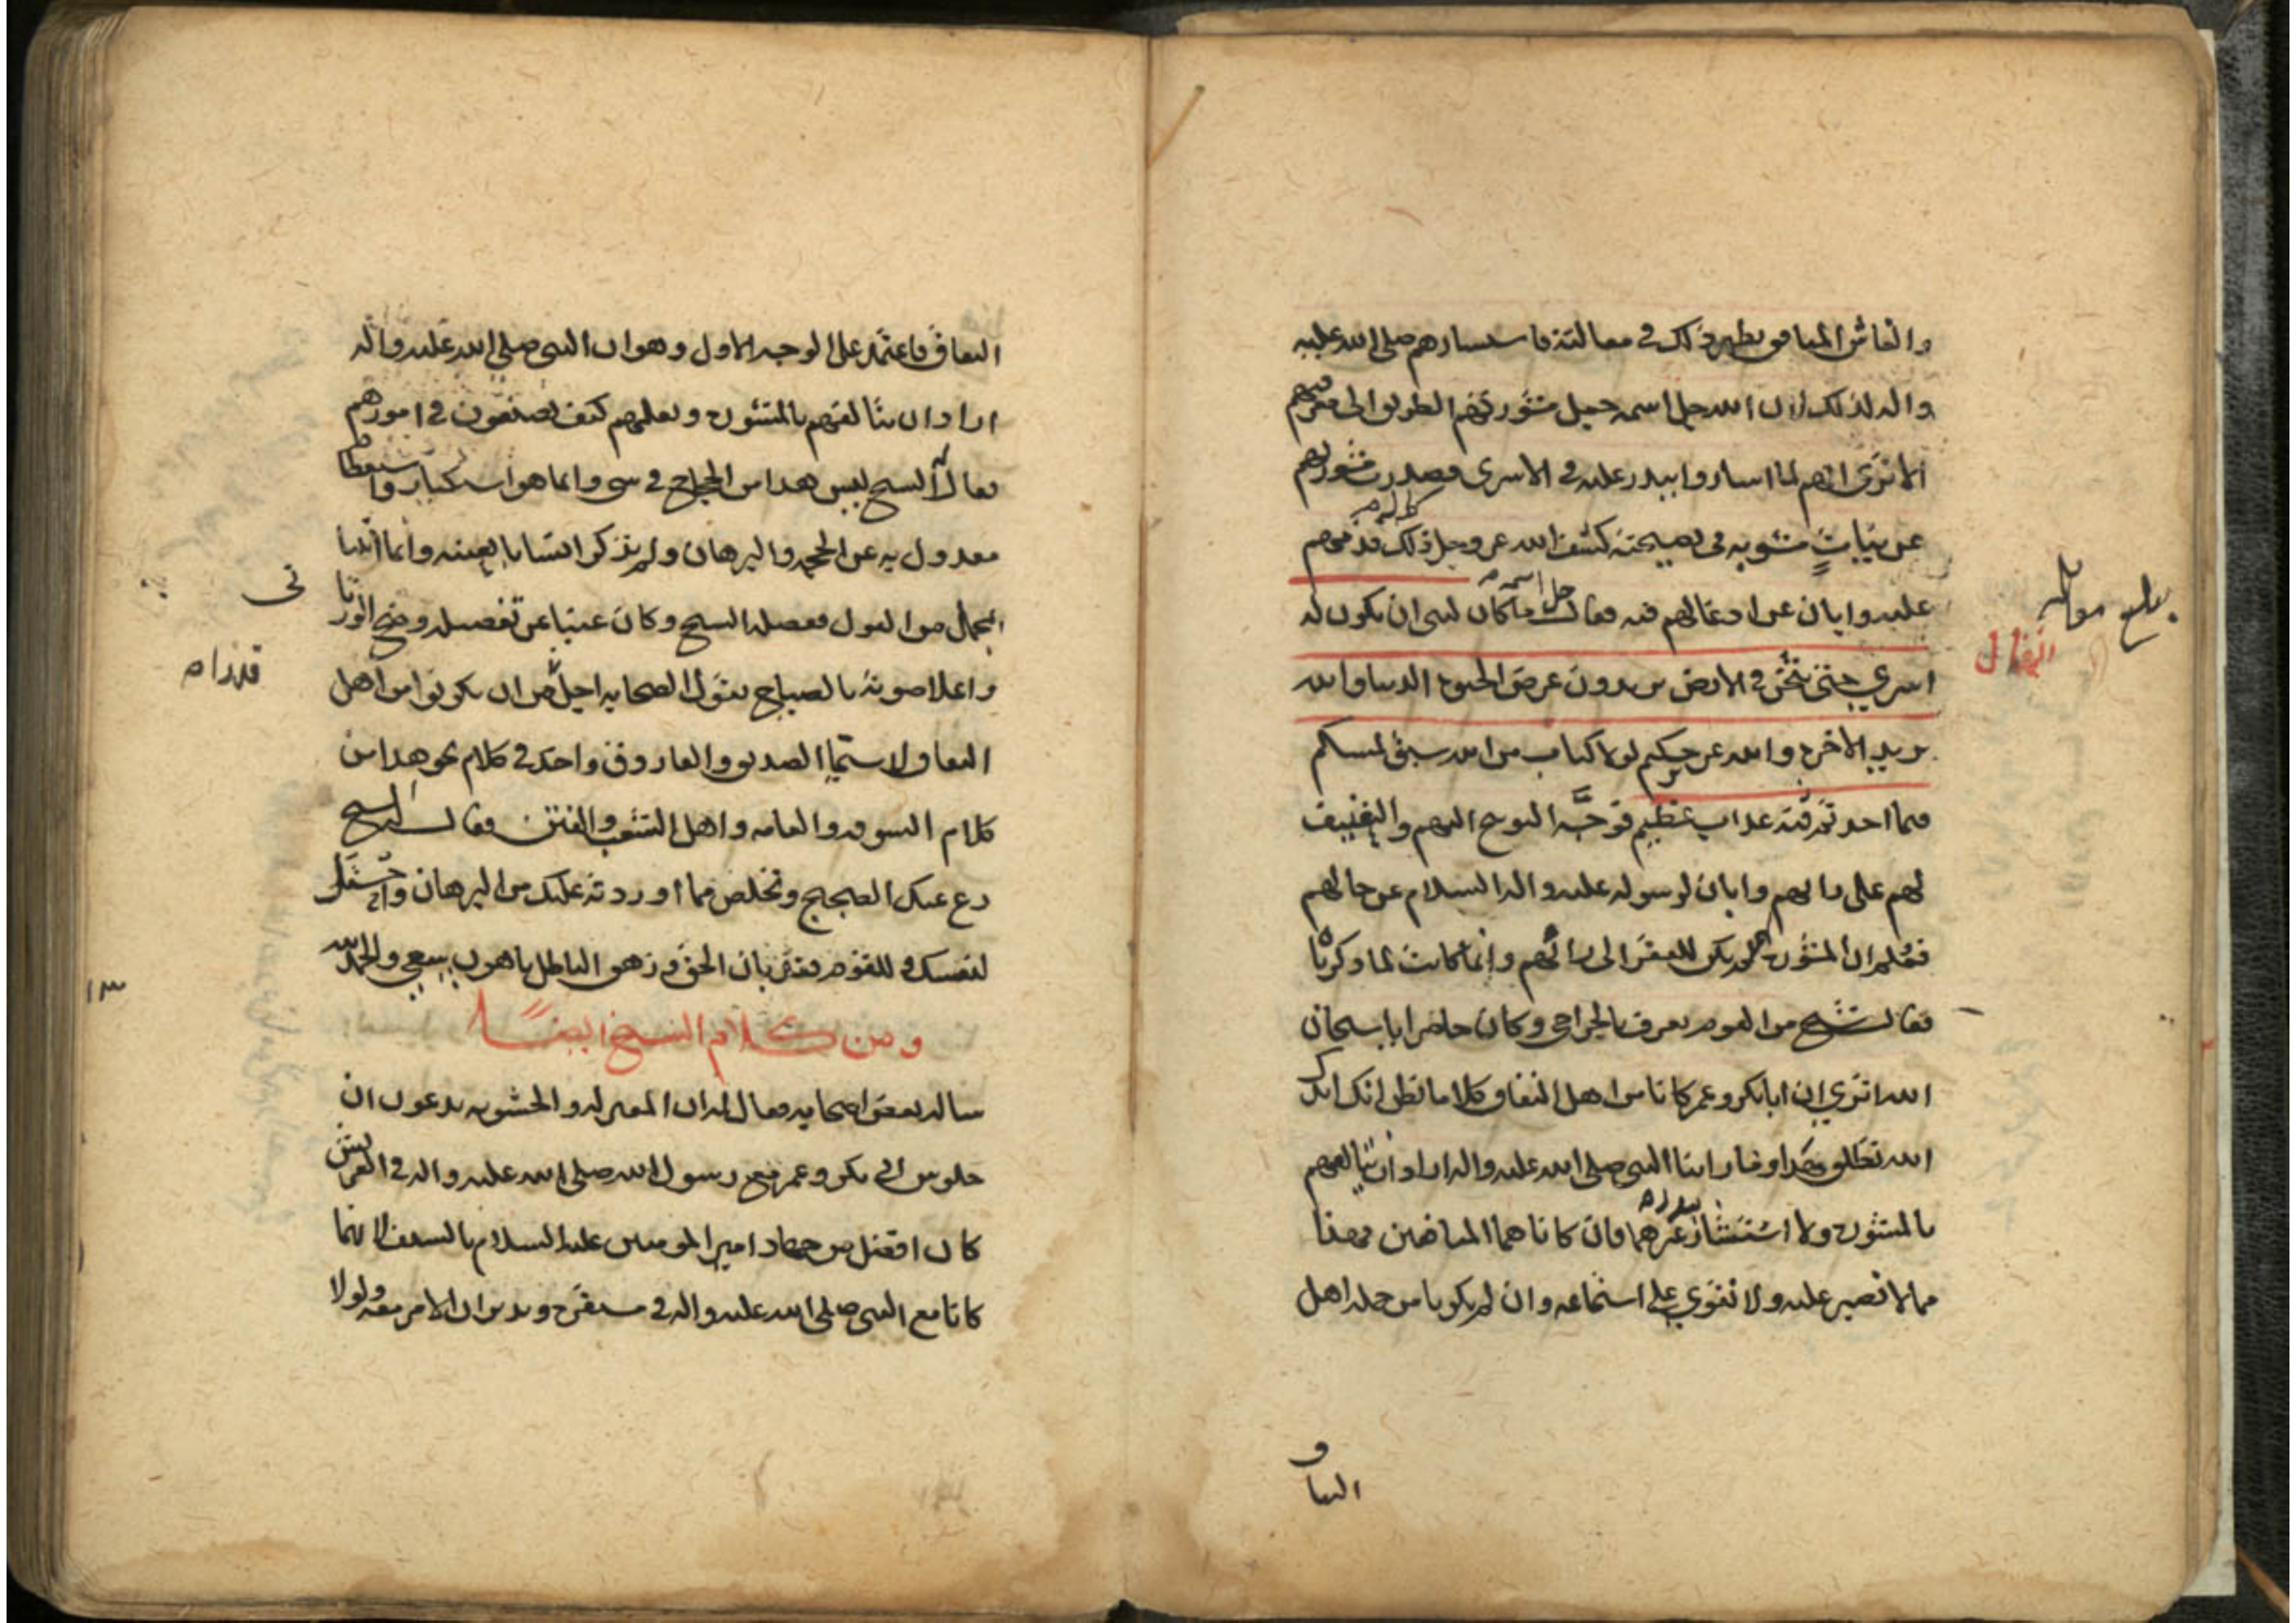 والغاش المنافق يظهر ذلك في مقالته فاستشارهم صلى الله عليه
واله لذلك ولان الله جل اسمه جعل مشورتهم الطريق الى معرفتهم
الا ترى انهم لما اشاروا ببدر عليه في الاسرى فصدرت مشورتهم
عن نيات مشوبة في نصيحته كشف الله عز وجل ذلك له وذمهم
عليه وابان عن ادغالهم فيه فقال جل اسمه ما كان لنبي ان يكون له
اسرى حتى يثخن في الارض تريدون عرض الحيوة الدنيا والله
يريد الاخرة والله عزيز حكيم لولا كتاب من الله سبق لمسكم
فيما اخذتم عذاب عظيم فوجه التوبيخ اليهم والتعنيف
لهم على رايهم وابان لرسوله عليه واله السلام عن حالهم
فعلم ان المشورة لهم لم يكن للفقر الى رائهم وانما كانت لما ذكرناه
فقال شيخ من القوم يعرف بالجراحي وكان حاضرا يا سبحان
الله اترى ان ابا بكر وعمر كانا من اهل النفاق كلا ما نظن انك ايدك
الله تطلق هذا وما راينا النبي صلى الله عليه واله اراد ان يتالفهم
بالمشورة ولا استشار ببدر غيرهما فان كانا هما المنافقين فهذا
مما لا نصبر عليه ولا نقوى على استماعه وان لم يكونا من جملة اهل
النفاق
بلغ مقابلة
الانفال
النفاق فاعتمد على الوجه الاول وهو ان النبي صلى الله عليه واله
اراد ان يتالفهم بالمشورة ويعلمهم كيف يصنعون في امورهم
فقال له الشيخ ليس هذا من الحجاج في شي وانما هو استكبار واستعظام
معدول به عن الحجة والبرهان ولم نذكر انسانا بعينه وانما اتينا
بمجمل من القول ففصله الشيخ وكان غنيا عن تفصيله وضج الورثاني
واعلا صوته بالصياح يقول الصحابة اجل قدرا من ان يكونوا من اهل
النفاق لا سيما الصديق والفاروق واخذ في كلام نحو هذا من
كلام السوقة والعامة واهل الشغب والفتن فقال له الشيخ
دع عنك الضجيج وتخلص مما اوردته عليك من البرهان واحتل
لنفسك وللقوم فقد بان الحق وزهق الباطل باهون سعي والحمد لله
ومن كلام الشيخ ايضا
ساله بعض اصحابه فقال له ان المعتزلة والحشوية يدعون ان
جلوس ابي بكر وعمر مع رسول الله صلى الله عليه واله في العريش
كان افضل من جهاد امير المومنين عليه السلام بالسيف لانهما
كانا مع النبي صلى الله عليه واله في مستقره ويدبران الامر معه ولولا
١٣